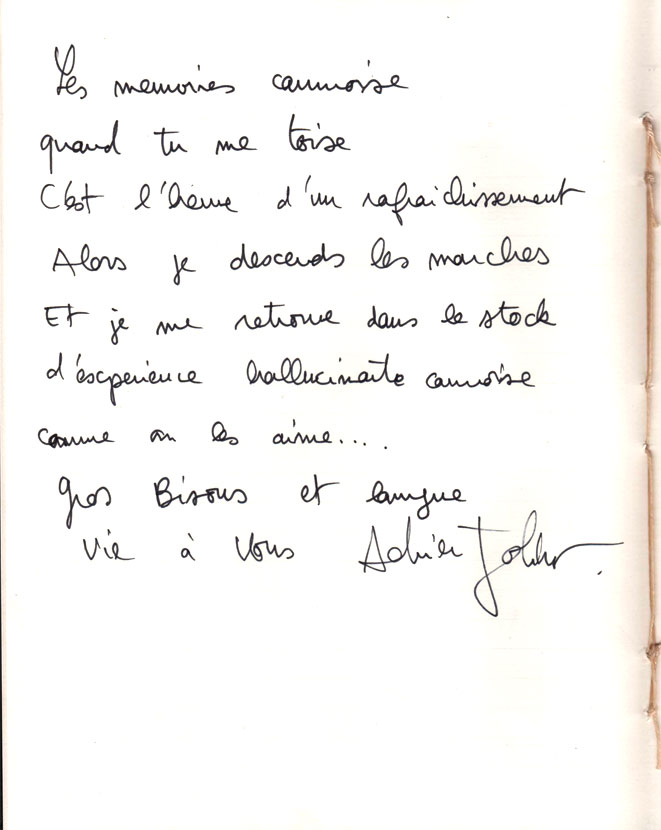 Les memoires cannoise
quand tu me toise
C'est l'heure d'un rafraichissement
Alors je descends les marches
Et je me retrouve dans le stock
d'éxperience hallucinante cannoise
comme on les aime....
Gros Bisous et longue
vie à vous Adrien